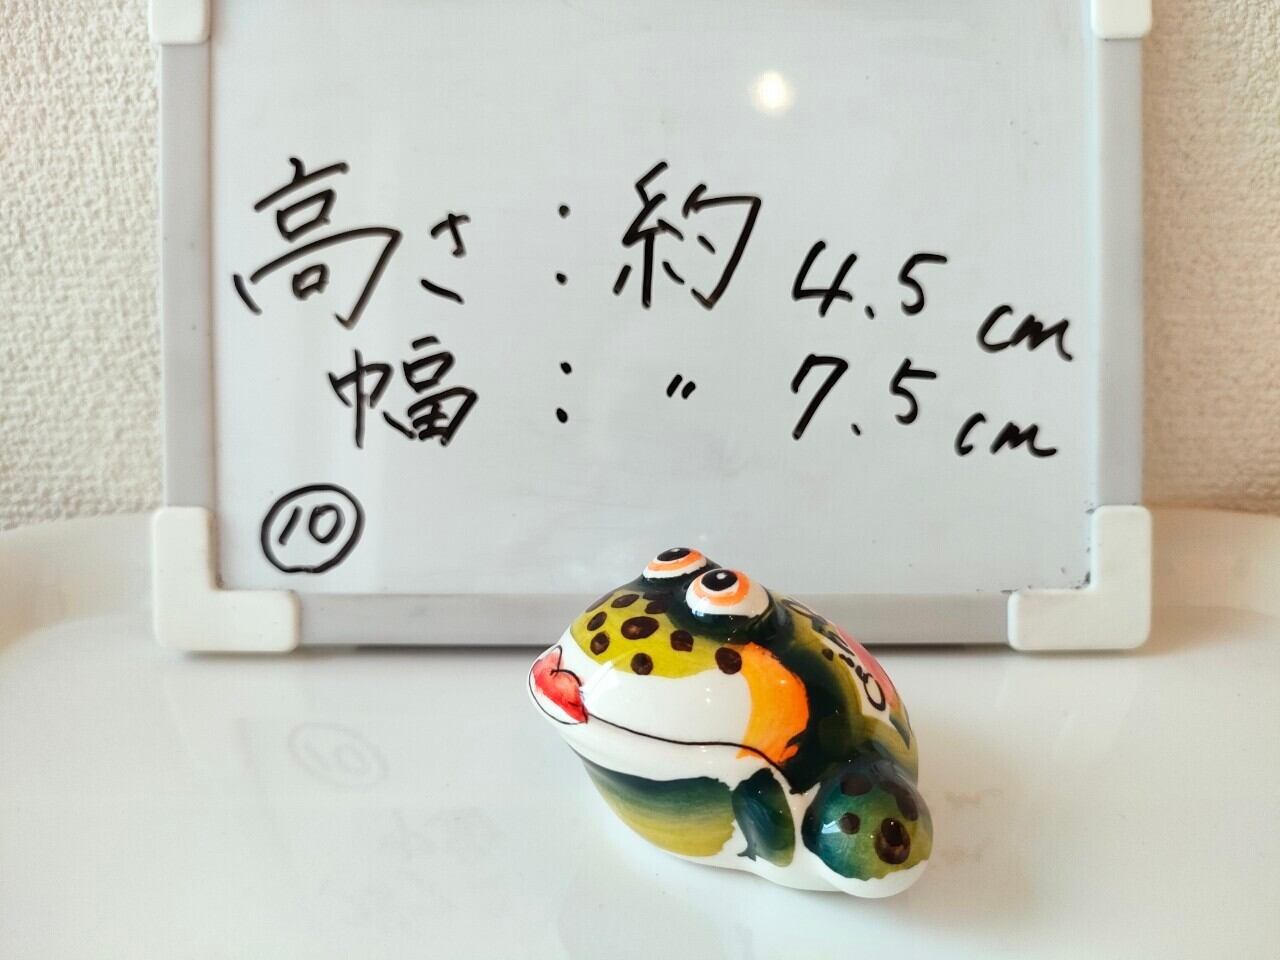 高さ：約 4.5 cm
幅：〃 7.5 cm
⑩